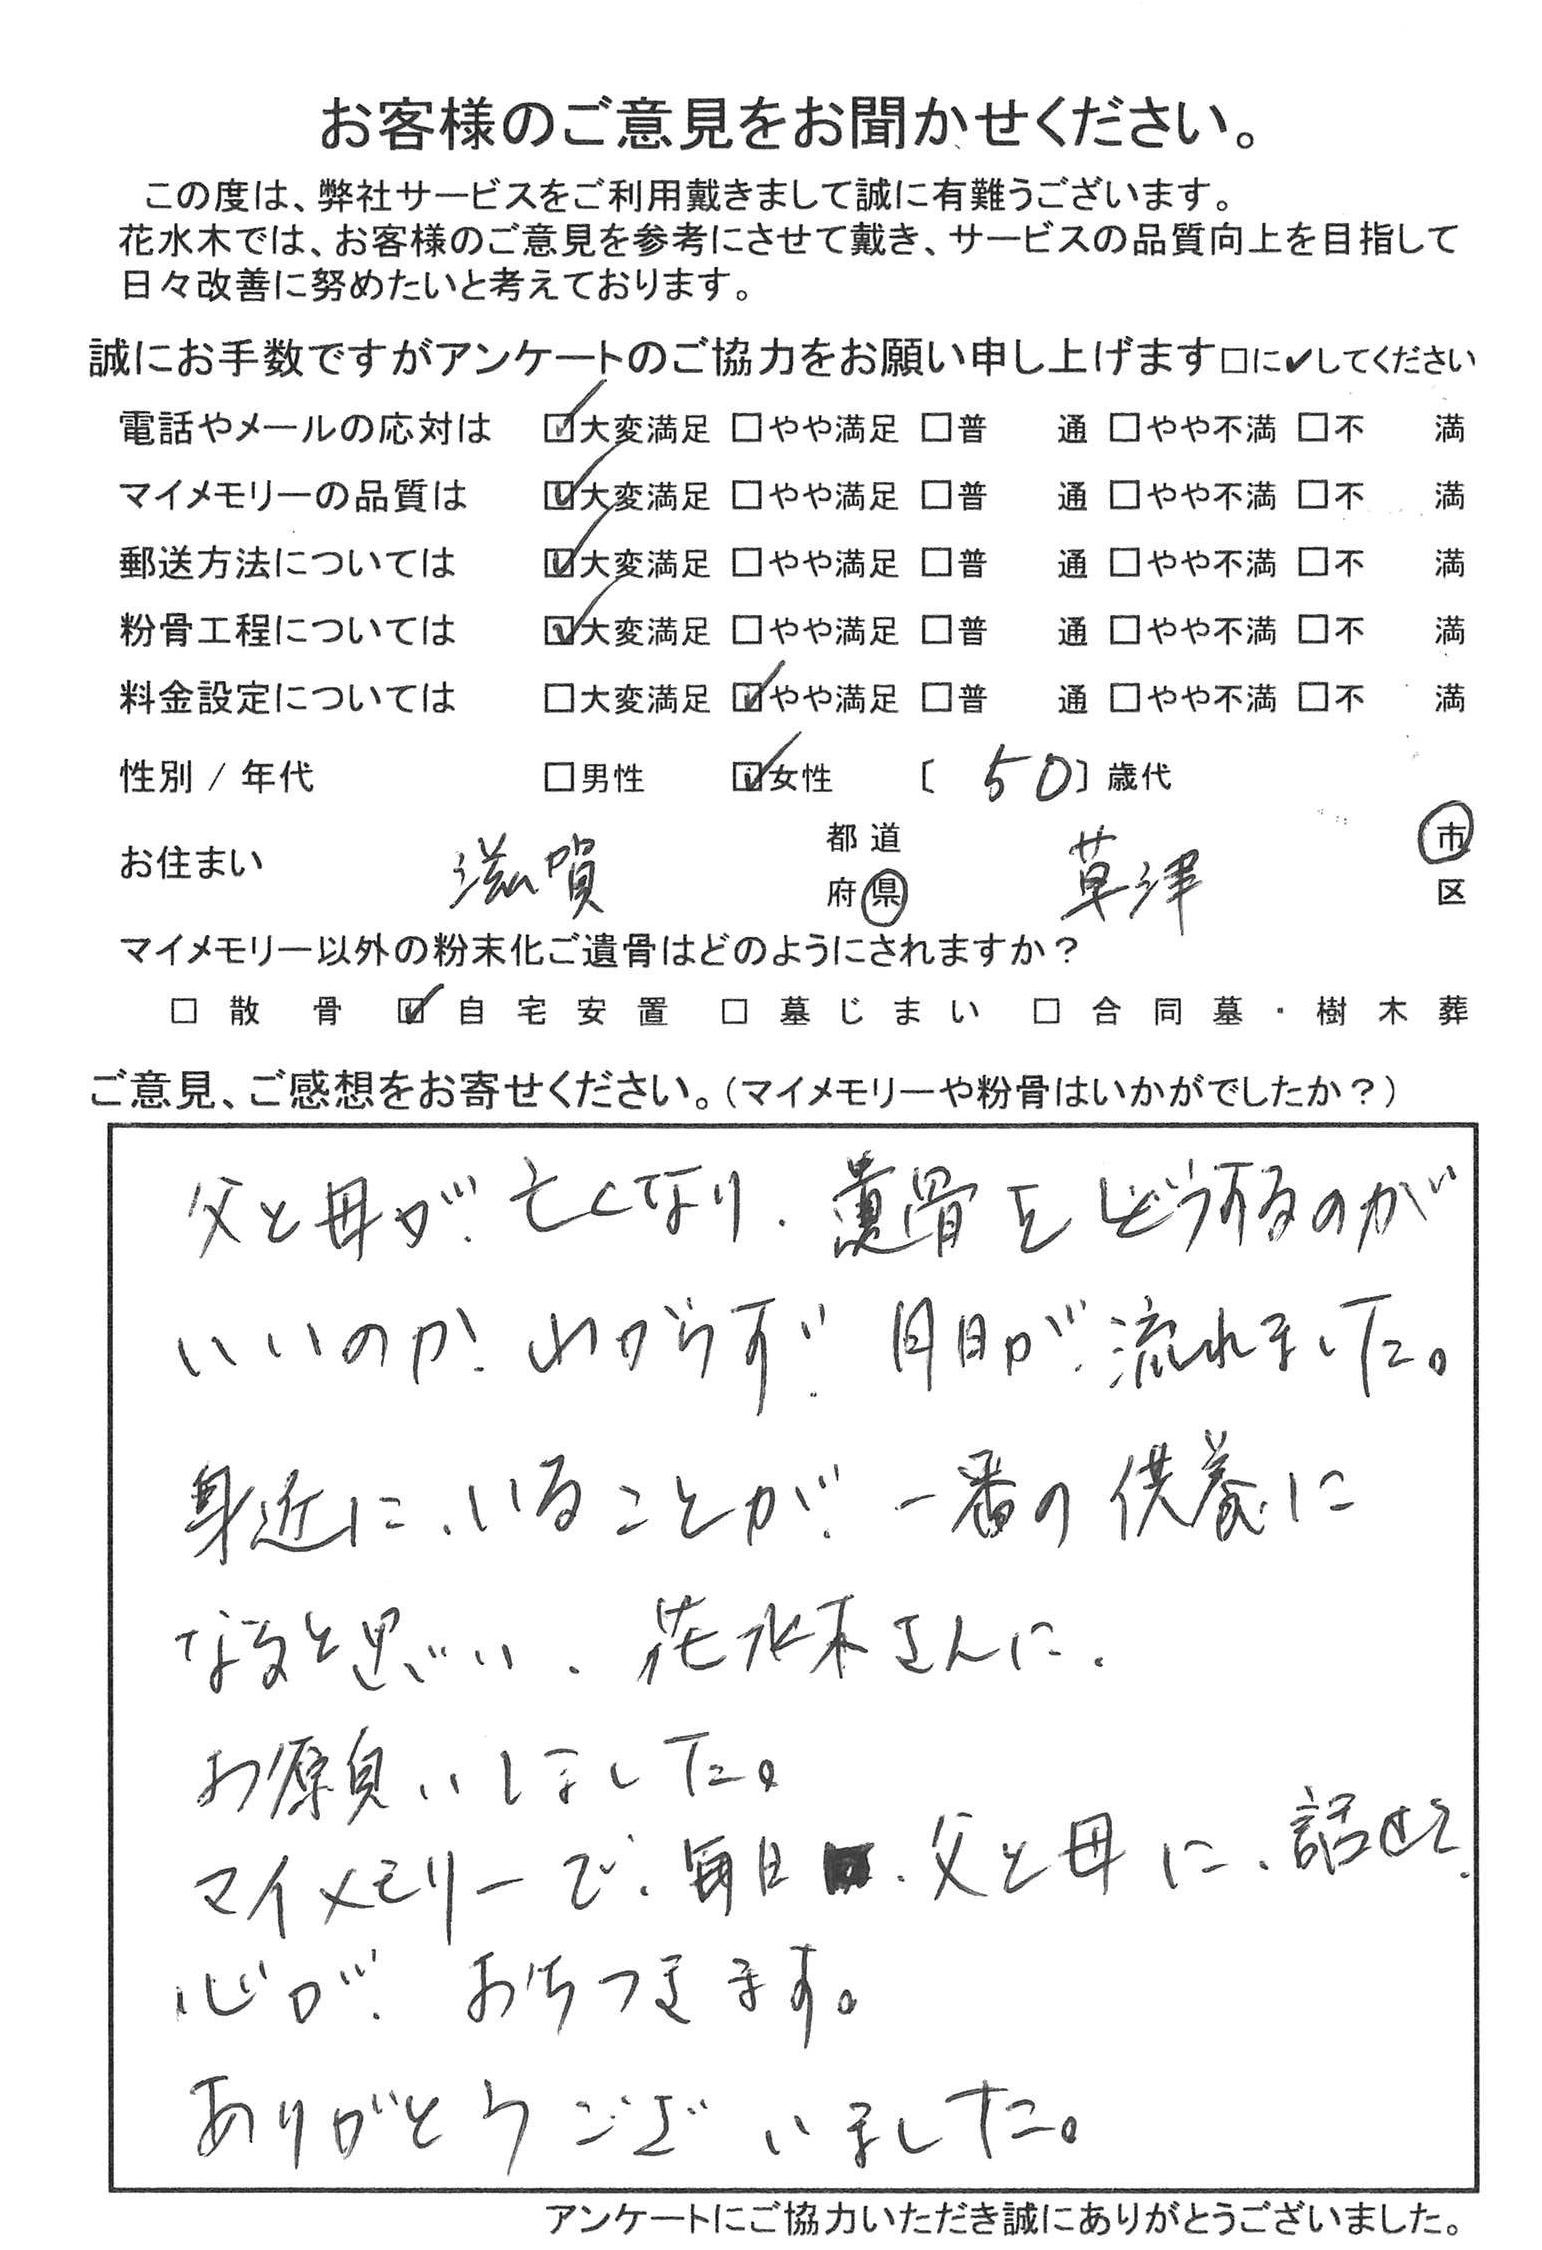 お客様のご意見をお聞かせください。
この度は、弊社サービスをご利用戴きまして誠に有難うございます。
花水木では、お客様のご意見を参考にさせて戴き、サービスの品質向上を目指して
日々改善に努めたいと考えております。
誠にお手数ですがアンケートのご協力をお願い申し上げます□に✔してください
電話やメールの応対は ☑大変満足 □やや満足 □普 通 □やや不満 □不 満
マイメモリーの品質は ☑大変満足 □やや満足 □普 通 □やや不満 □不 満
郵送方法については ☑大変満足 □やや満足 □普 通 □やや不満 □不 満
粉骨工程については ☑大変満足 □やや満足 □普 通 □やや不満 □不 満
料金設定については □大変満足 ☑やや満足 □普 通 □やや不満 □不 満
性別 / 年代 □男性 ☑女性 〔 50 〕歳代
お住まい 滋賀 都道府県 草津 市区
マイメモリー以外の粉末化ご遺骨はどのようにされますか？
□ 散骨 ☑ 自宅安置 □ 墓じまい □ 合同墓・樹木葬
ご意見、ご感想をお寄せください。（マイメモリーや粉骨はいかがでしたか？）
父と母が、亡くなり、遺骨をどうするのが
いいのか、わからず、月日が、流れました。
身近に、いることが、一番の供養に
なると思い、花水木さんに、
お願いしました。
マイメモリーで、毎日、父と母に、話せて、
心が、おちつきます。
ありがとうございました。
アンケートにご協力いただき誠にありがとうございました。